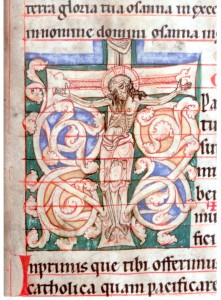 terra gloria tua osanna in exce
in nomine domini osanna in
Pa
tu
sun
mu
fici
Inprimis que tibi offerimus
catholica quam pacificare